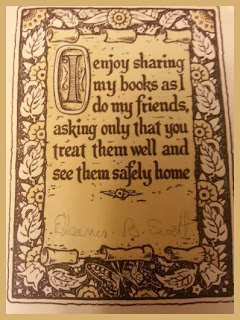 I enjoy sharing
my books as I
do my friends,
asking only that you
treat them well and
see them safely home
B. Scott